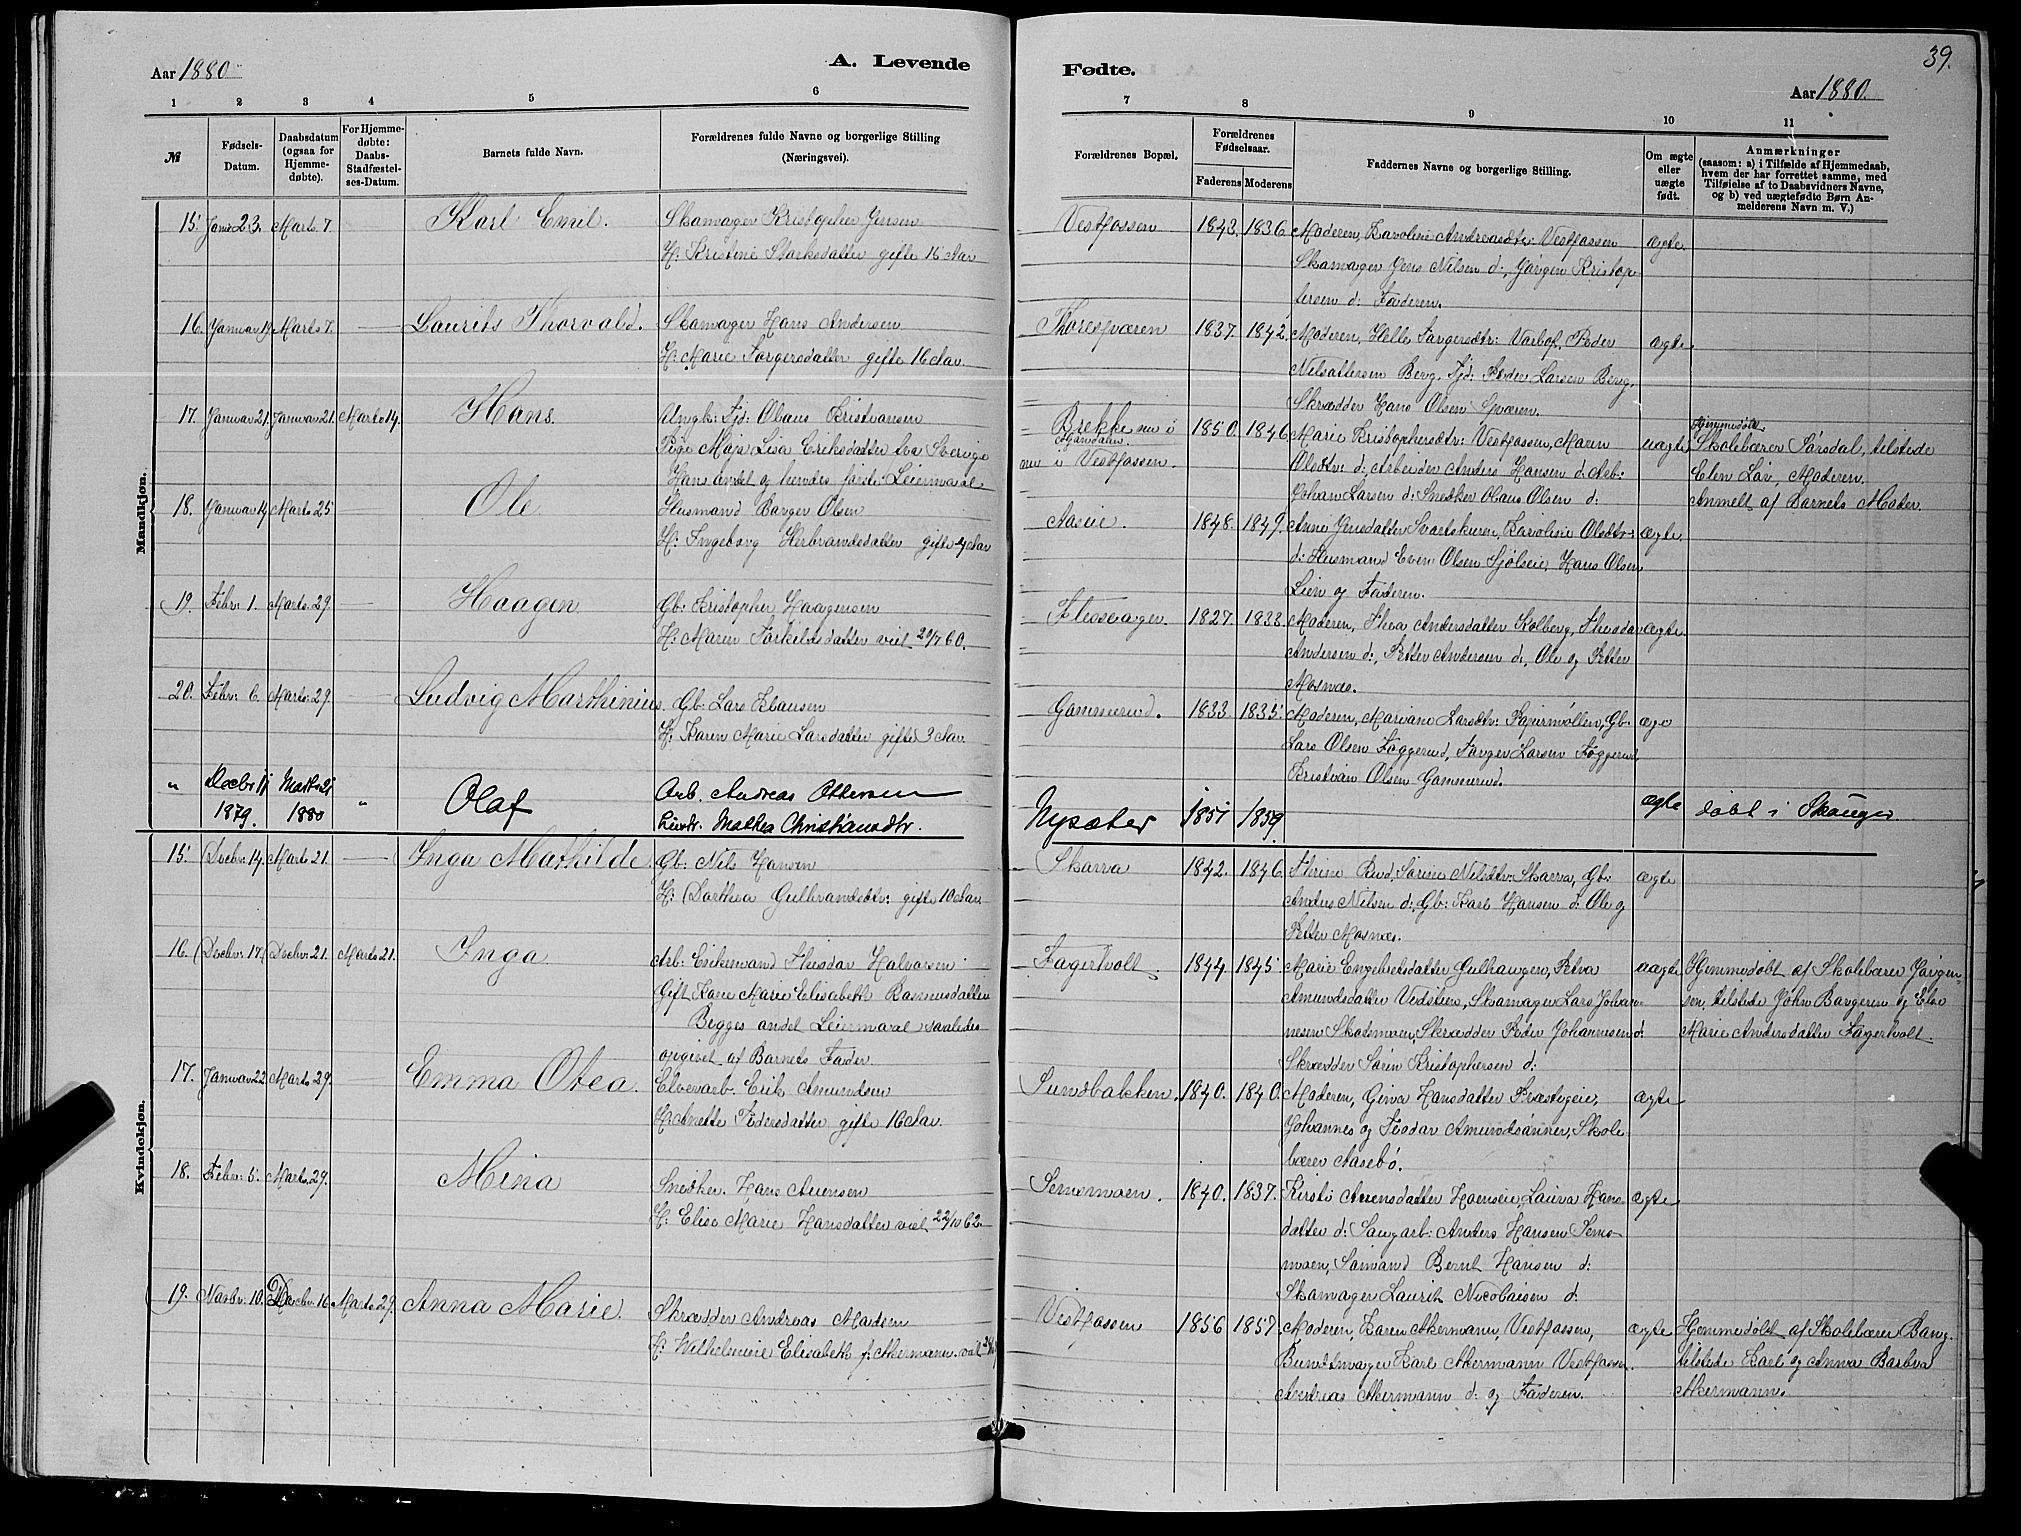 39.
Aar 1880
A. Levende
Fødte.
Aar 1880.
1 2 3 4 5 6
7 8 9 10 11
№
Fødsels-
Datum.
Daabsdatum
(ogsaa for
Hjemme-
døbte).
For Hjemme-
døbte:
Daabs-
Stadfæstel-
ses-Datum.
Barnets fulde Navn.
Forældrenes fulde Navne og borgerlige Stilling
(Næringsvei).
Forældrenes Bopæl.
Forældrenes
Fødselsaar.
Faderens Moderens
Faddernes Navne og borgerlige Stilling.
Om ægte
eller
uægte
født.
Anmærkninger
(saasom: a) i Tilfælde af Hjemmedaab,
hvem der har forrettet samme, med
Tilføielse af to Daabsvidners Navne,
og b) ved uægtefødte Børn An-
melderens Navn m. V.)
Mandkjøn.
15. Janr 23. Marts 7. — Karl Emil. Skomager Kristopher Jensen
H: Kristine Larsdatter gifte 15 Aar
Vestfossen 1843. 1836 Moderen, Karoline Andreasdtr: Vestfossen ægte.
Skomager Jens Nilsen d:, Jörgen Kristop
hersen d: Faderen.
16. Januar 19. Marts 7. — Laurits Thorvald. Skomager Hans Andersen
H: Marie Torgersdatter gifte 16 Aar
1837. 1842. Moderen, Helle Torgersdtr: Peder ægte
Berg. Tjd: Peder Larsen Berg.
Skrædder Hans Olsen
17. Januar 21. Januar 21. Marts 14. Hans. Ungk: Tjd: Olaus Kristiansen
Pige Maja Lisa Eriksdatter fra Sverige
Hans andet og hendes förste Leiermaal
Brekke
i Vestfossen. 1850. 1846 Marie Kristophersdtr: Vestfossen, Maren uægte
Olsdtr: d: Arbeider Anders Hansen d: Arb:
Johan Larsen d: Snedker Olaus Olsen d:
Hjemmedöbt
Skolelærer Sörsdal, tilstede
Elen Moderen.
Anmelt af Barnets Moder.
18. Januar 14. Marts 25 — Ole Husmand Borger Olsen
H: Ingeborg Herbrandsdatter gifte 4 Aar
Aaseie. 1848. 1849. Anne Jensdatter Karoline Olsdtr: ægte.
d: Husmand Even Olsen Hans Olsen
Lien og Faderen.
19. Febr: 1. Marts 29. — Haagen Gb: Kristopher Haagensen
H: Maren Torkildsdatter viet 29/7 60.
Flesseager. 1827. 1838. Moderen, Thea Andersdatter Kolberg, Theodor ægte.
Andersen d:, Petter Andersen d:, Ole og Petter
Mosnæs.
20. Febr: 6. Marts 29. — Ludvig Marthinius. Gb: Lars Klausen
H: Karen Marie Larsdatter gifte 3 Aar.
Gommerud. 1833. 1835. Moderen, Mariane Larsdtr: Papirmöllen, Gb:
Lars Olsen Foggerud, Torger Larsen Foggerud,
Kristian Olsen Gommerud.
" Decbr 11 1879. Marts 21 1880 " Olaf Arb. Andreas Ottersen
Hustr. Mathea Christiansdtr.
Nysæter 1851 1859 ægte døbt i Skouger
Kvindekjøn.
15. Decbr: 14. Marts 21. — Inga Mathilde Gb: Nils Hansen
H: Dorthea Gulbrandsdtr: gifte 10 Aar.
Skarra 1842. 1846. Thrine Rud, Sörine Nilsdtr: Skarra, Gb: ægte
Anders Nilsen d:, Gb: Karl Hansen d: Ole og
Petter Mosnæs.
16. Decbr: 17. Decbr: 21. Marts 21. Inga Arb: Enkemand Theodor Halvorsen
Gift Kone Marie Elisabeth Rasmusdatter
Begges andet Leiermaal saaledes
opgivet af Barnets Fader
Fagerholt 1844. 1845. Marie Engebretsdatter Gulhaugen, Petra uægte
Amundsdatter Vedstien, Skomager Lars Johan-
nesen Skodsmoen, Skrædder Peder Johannesen d:
Skrædder Sören Kristophersen d:
Hjemmedöbt af Skolelærer Jörgen-
sen, tilstede John Borgersen og Else
Marie Andersdatter Fagerholt.
17. Januar 22. Marts 29. — Emma Otea. Elvearb. Erik Amundsen
H: Anette Pedersdatter gifte 16 Aar.
Sundbakken. 1840. 1840. Moderen, Gina Hansdatter Præsteeie, ægte
Johannes og Teodor Amundsönner, Skole
lærer Aasebö.
18. Febr: 5. Marts 29. Mina Snedker. Hans Arensen
H: Elise Marie Hansdatter viet 22/10 62.
Semsmoen. 1840. 1837. Kirsti Arensdatter Hoenseie, Laura Hans- ægte
datter d: Saugarb: Anders Hansen Sems-
moen, Sömand Bernt Hansen d:
Skomager Laurits Nicolaisen d:
19. Novbr: 10. Decbr: 16 Marts 29. Anna Marie. Skrædder Andreas Madsen
H: Wilhelmine Elisabeth f. Akermann. viet
Vestfossen 1856 1857. Moderen, Karen Akermann, Vestfossen, ægte
Buntmager Karl Akermann Vestfossen.
Andreas Akermann d: og Faderen.
Hjemmedöbt af Skolelærer Bang.
tilstede Karl og Anna Barbra
Akermann.